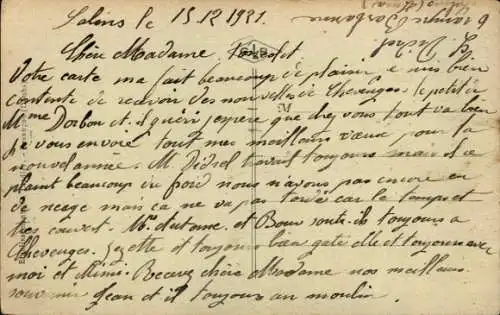 Salins le 15.12 1921.
Chère Madame
Votre carte ma fait beaucoup de plaisir e suis bien
contente de recevoir des nouvelles de Chevenges le petit de
Mme Dorbon et guéri j'espère que chez vous tout va bien
Je vous envoie tout mes meilleurs vœux pour la
nouvel année. M. Didrel travail toujours mais il se
plaint beaucoup du froid nous n'avons pas encore eu
de neige mais ca ne va pas tarde car le temps et
très couvert. Mr. Autome. et Bour sont-ils toujours a
Chevenges. Gezette et toujours bien gatée elle et toujours avec
moi et Mimi. Recevez chère Madame nos meilleurs
souvenirs Jean et il toujours au moulin.
G. Didrel
6